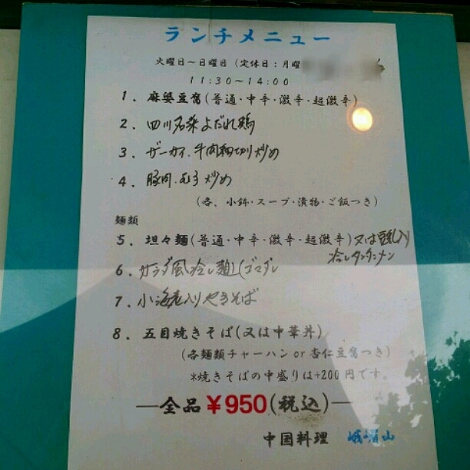 ランチメニュー
火曜日～日曜日(定休日:月曜
11:30~14:00
1. 麻婆豆腐(普通・中辛・激辛・超激辛)
2. 四川名菜よだれ鶏
3. ザーサイ・牛肉細切り炒め
4. 豚肉・玉子炒め
(各、小鉢・スープ・漬物・ご飯つき)
麺類
5. 坦々麺(普通・中辛・激辛・超激辛)又は豆乳入り
冷しタンタンメン
6. サラダ風冷し麺(ゴマダレ
7. 小海老入りやきそば
8. 五目焼きそば(又は中華丼)
(各麺類チャーハンor杏仁豆腐つき)
*焼きそばの中盛りは+200円です。
—全品¥950(税込)—
中国料理 峨嵋山